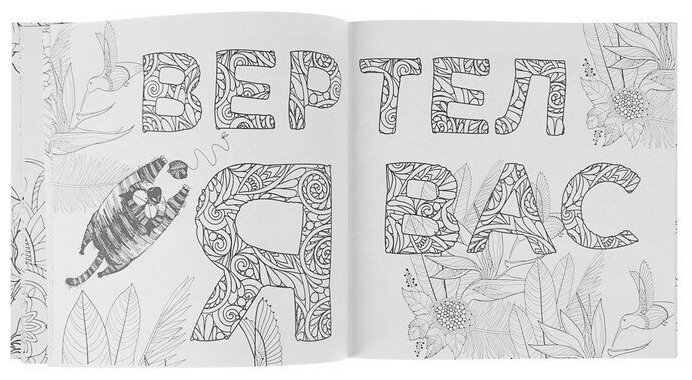 ВЕРТЕЛ
Я ВАС